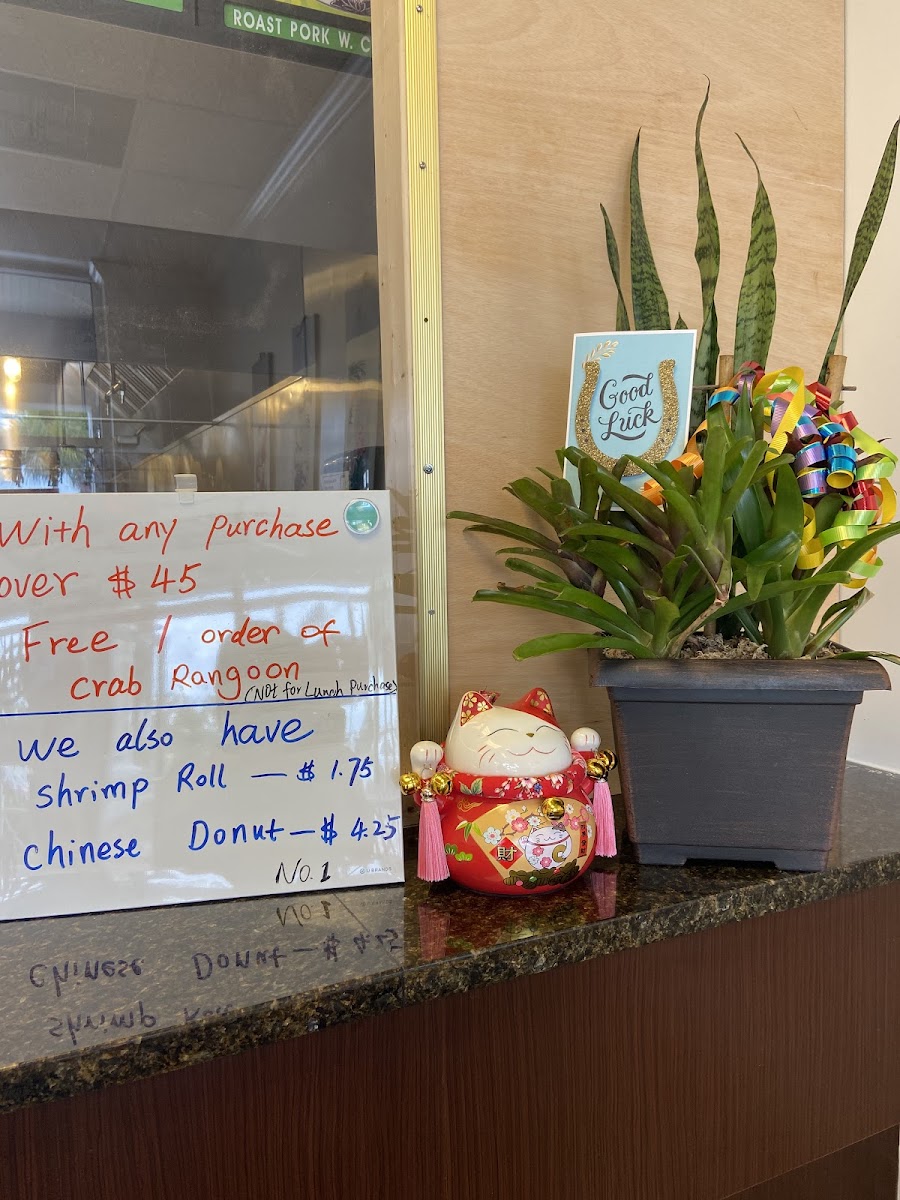 ROAST PORK W. C
Good
Luck
With any purchase
over $45
Free 1 order of
Crab Rangoon
(Not for Lunch Purchase)
We also have
shrimp Roll — $1.75
Chinese Donut — $4.25
No. 1
財